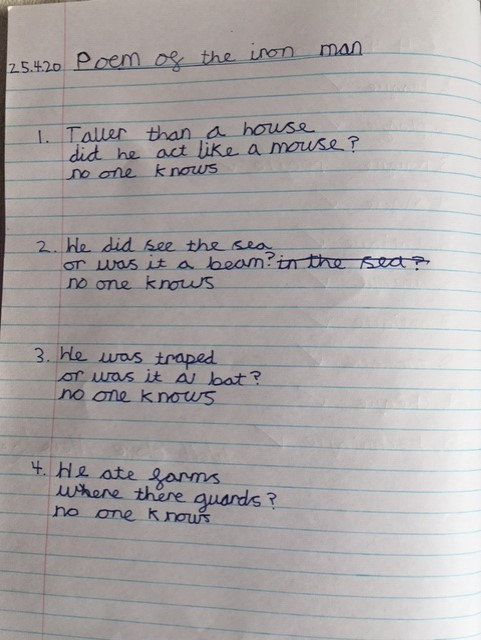 25.4.20 Poem of the iron man
1. Taller than a house
did he act like a mouse?
no one knows
2. He did see the sea
or was it a beam? in the sea?
no one knows
3. He was traped
or was it a bat?
no one knows
4. He ate farms
where there guards?
no one knows